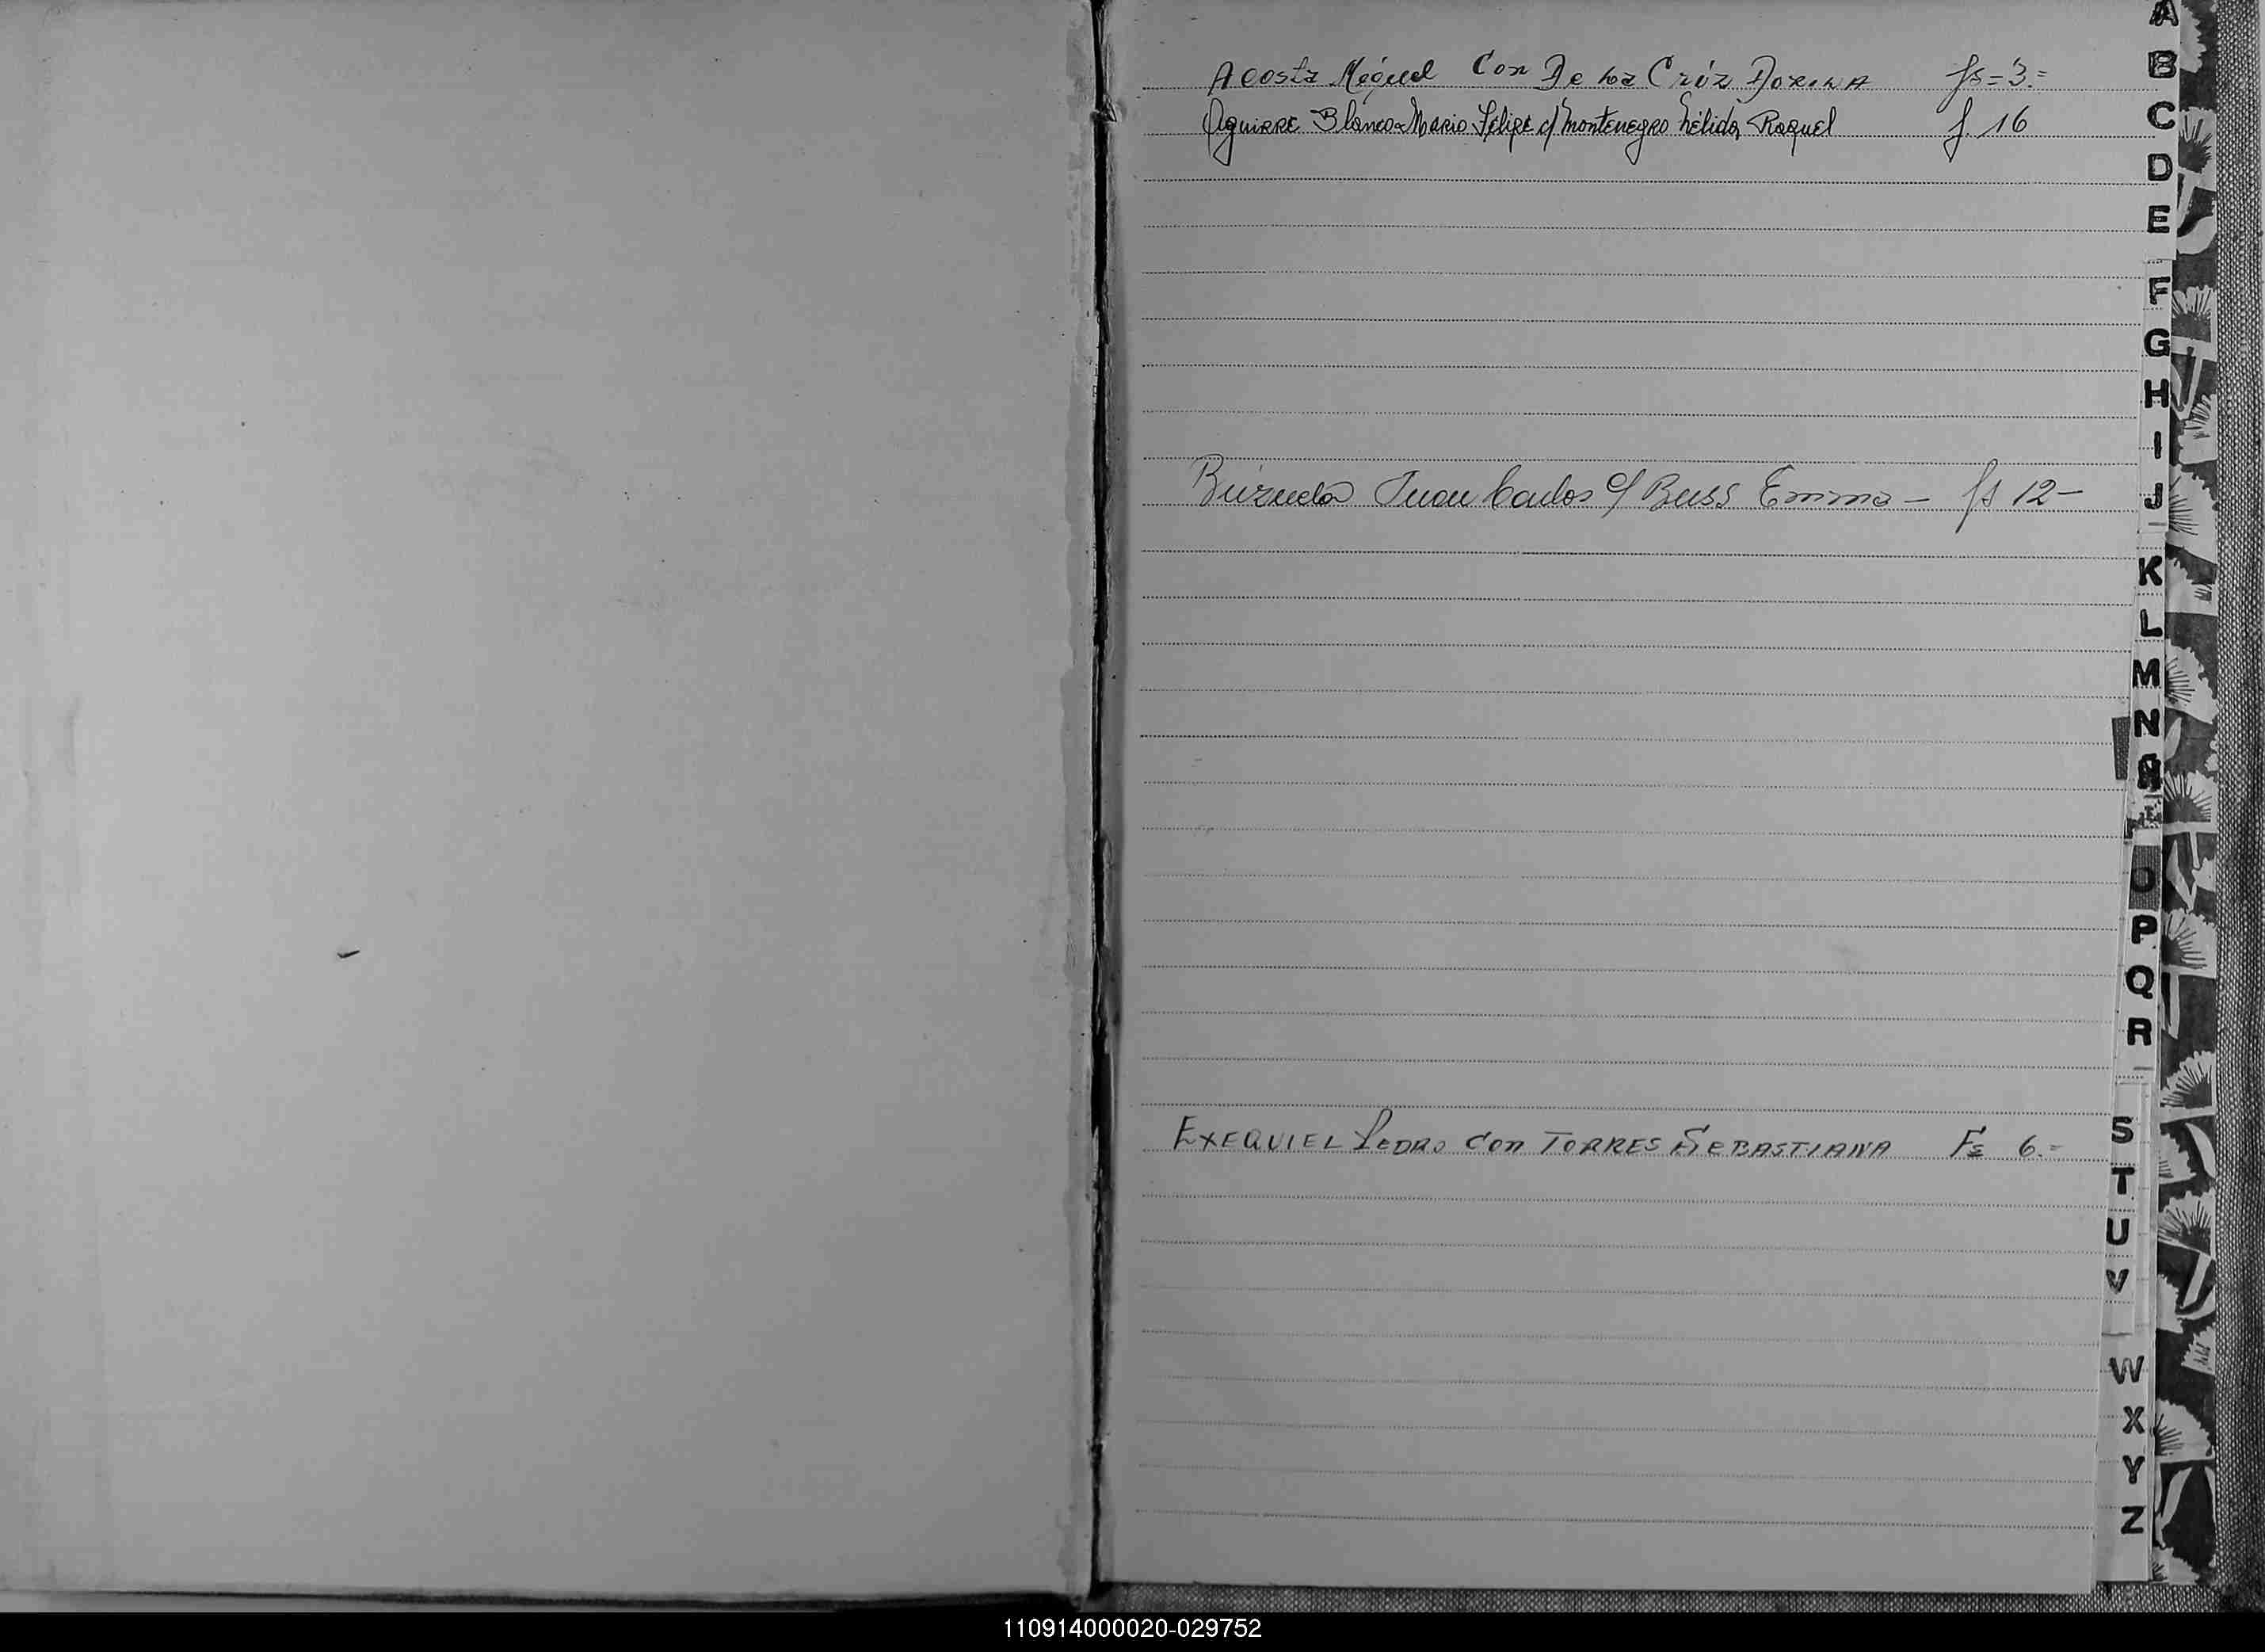 Acosta Miguel Con De La Cruz Dorina fs = 3 =
Aguirre Blanco Mario Felipe c/ Montenegro Nélida Raquel f. 16
Juan Carlos c/ Buss Emma - fs 12 -
EXEQUIEL PEDRO CON TORRES SEBASTIANA Fs 6.=
A
B
C
D
E
F
G
H
I
J
K
L
M
N
O
P
Q
R
S
T
U
V
W
X
Y
Z
110914000020-029752